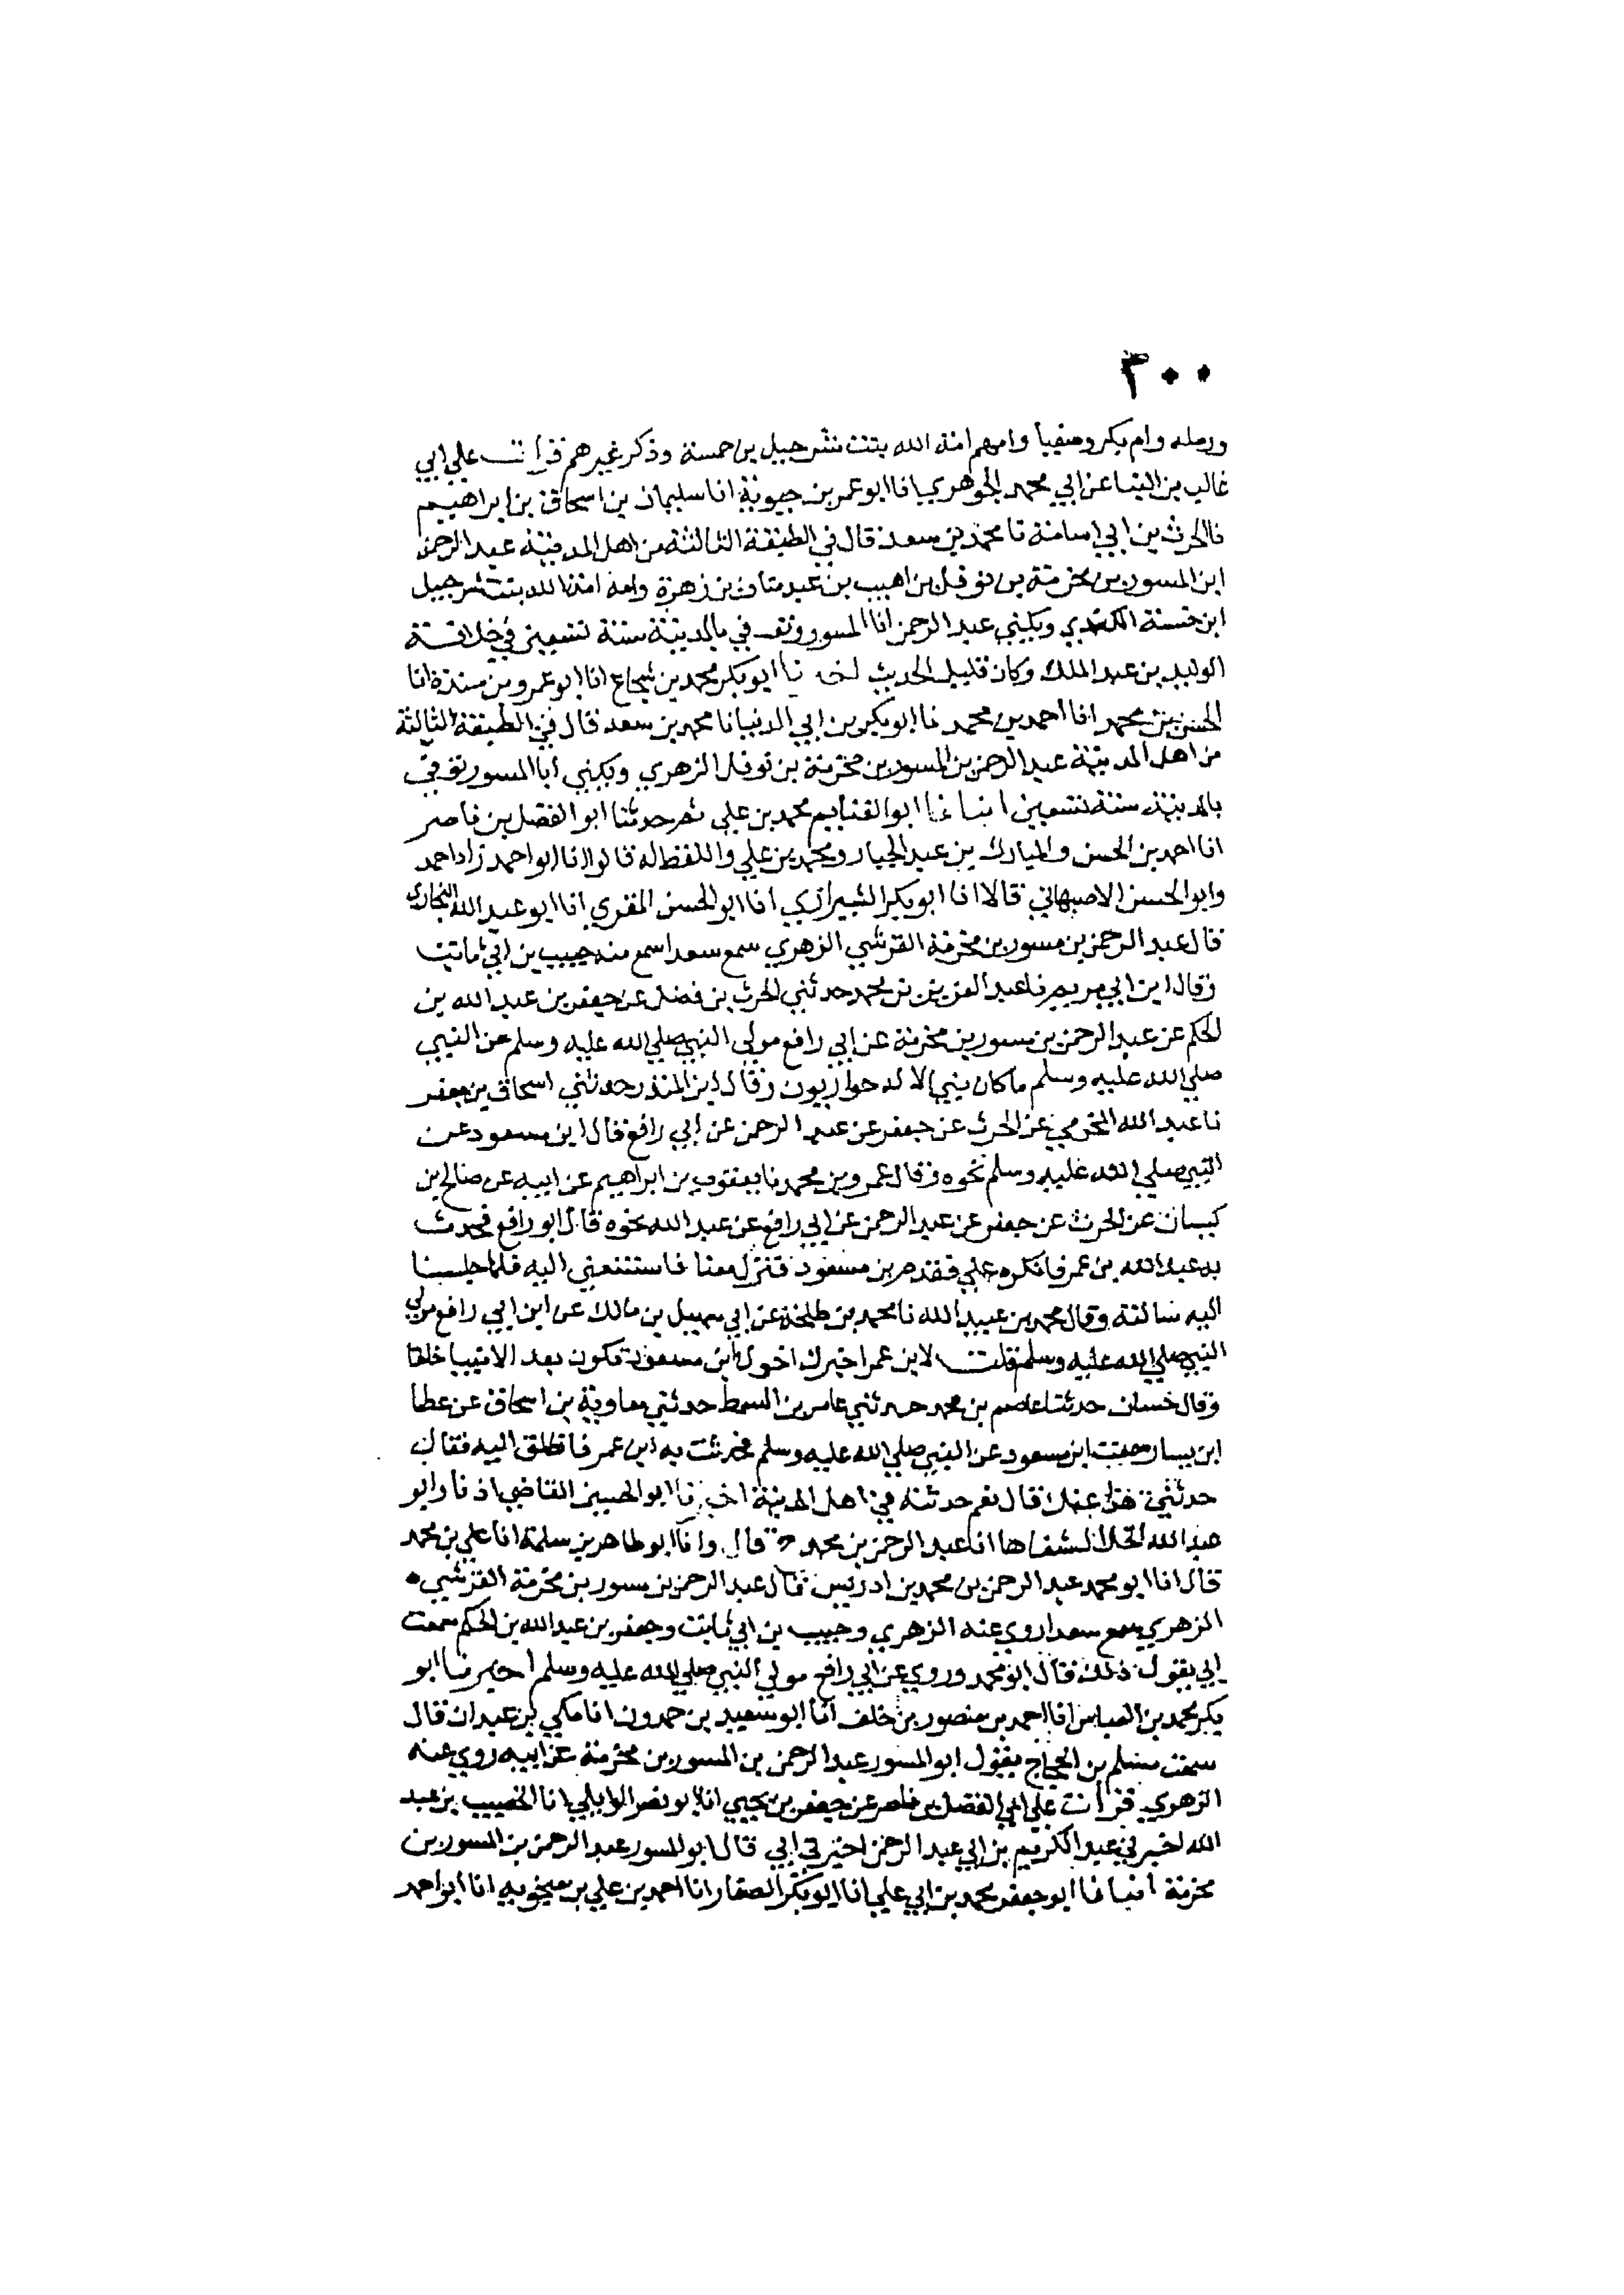 ٣٠٠
ورمله وام بكر وصفيا وامهم امة الله بنت شرحبيل بن حسنة وذكر غيرهم قرات علي ابي
غالب بن البنا عن ابي محمد الجوهري انا ابو عمر بن حيوية انا سليمان بن اسحاق بن ابراهيم
نا الحرث بن ابي اسامة نا محمد بن سعد قال في الطبقة الثالثة من اهل المدينة عبد الرحمن
ابن المسور بن مخرمة بن نوفل بن اهيب بن عبد مناف بن زهرة وامه امة الله بنت شرحبيل
ابن حسنة الكندي ويكني عبد الرحمن ابا المسور وتوفي بالمدينة سنة تسعين في خلافة
الوليد بن عبد الملك وكان قليل الحديث اخبرنا ابو بكر محمد بن شجاع انا ابو عمرو بن مندة انا
الحسن بن محمد انا احمد بن محمد نا ابو بكر بن ابي الدنيا نا محمد بن سعد قال في الطبقة الثالثة
من اهل المدينة عبد الرحمن بن المسور بن مخرمة بن نوفل الزهري ويكني ابا المسور توفي
بالمدينة سنة تسعين انبانا ابو الغنايم محمد بن علي ثم حدثنا ابو الفضل بن ناصر
انا احمد بن الحسن والمبارك بن عبد الجبار ومحمد بن علي واللفظ له قالوا انا ابو احمد زاد احمد
وابو الحسن الاصبهاني قالا انا ابو بكر الشيرازي انا ابو الحسن المقري انا ابو عبد الله البخاري
قال عبد الرحمن بن مسور بن مخرمة القرشي الزهري سمع سعدا سمع منه حبيب بن ابي ثابت
وقال ابن ابي مريم نا عبد العزيز بن محمد حدثني الحرث بن فضل عن جعفر بن عبد الله بن
الحكم عن عبد الرحمن بن مسور بن مخرمة عن ابي رافع مولى النبي صلي الله عليه وسلم عن النبي
صلي الله عليه وسلم ما كان نبي الا له حواريون وقال ابن المنذر حدثني اسحاق بن جعفر
نا عبد الله المخرمي عن الحرث عن جعفر عن عبد الرحمن عن ابي رافع قال ابن مسعود عن
النبي صلي الله عليه وسلم نحوه وقال عمرو بن محمد نا يعقوب بن ابراهيم عن ابيه عن صالح بن
كيسان عن الحرث عن جعفر عن عبد الرحمن عن ابي رافع عن عبد الله نحوه قال ابو رافع فحدث
به عبد الله بن عمر فانكره علي فقدم بن مسعود فنزل معنا فاستتبعني اليه فلما جلسنا
اليه سالته وقال محمد بن عبيد الله نا محمد بن طلحة عن ابي سهيل بن مالك عن ابن ابي رافع مولي
النبي صلي الله عليه وسلم قلت لابن عمر اخبرك اخوك ابن مسعود تكون بعد الانبيا خلفا
وقال حسان حدثنا عاصم بن محمد حدثني عامر بن السمط حدثني معاوية بن اسحاق عن عطا
ابن يسار سمعت ابن مسعود عن النبي صلي الله عليه وسلم فحدثت به ابن عمر فانطلق اليه فقال
حدثني هذا عنك قال نعم حدثته في اهل المدينة اخبرنا ابو الحسين القاضي اذنا وابو
عبد الله الخلال شفاها انا عبد الرحمن بن محمد ح قال وانا ابو طاهر بن سلمة انا علي بن محمد
قال انا ابو محمد عبد الرحمن بن محمد بن ادريس قال عبد الرحمن بن مسور بن مخرمة القرشي
الزهري سمع سعدا روي عنه الزهري وحبيب بن ابي ثابت وجعفر بن عبد الله بن الحكم سمعت
ابي يقول ذلك قال ابو محمد وروي عن ابي رافع مولي النبي صلي الله عليه وسلم اخبرنا ابو
بكر محمد بن العباس انا احمد بن منصور بن خلف انا ابو سعيد بن حمدون انا مكي بن عبدان قال
سمعت مسلم بن الحجاج يقول ابو المسور عبد الرحمن بن المسور بن مخرمة عن ابيه روي عنه
الزهري قرات علي ابي الفضل بن ناصر عن جعفر بن يحيي انا ابو نصر الوايلي انا الخصيب بن عبد
الله اخبرني عبد الكريم بن ابي عبد الرحمن اخبرني ابي قال ابو المسور عبد الرحمن بن المسور بن
مخرمة انبانا ابو جعفر محمد بن ابي علي انا ابو بكر الصفار انا احمد بن علي بن منجويه انا ابو احمد